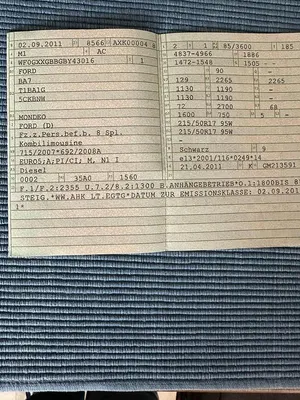 02.09.2011 8566 AXK00004 8
M1 AC
WF0GXXGBBGBY43016 1
FORD
BA7
T1BA1G
5CKENW
MONDEO
FORD (D)
Fz.z.Pers.bef.b. 8 Spl.
Kombilimousine
715/2007*692/2008A
EURO5;A;PI/CI; M, N1 I
Diesel
0002 35A0 1560
2 1 85/3600 185
4837-4966 1886
1472-1548 1505 -
- 90 -
129 2265 2265
1130 1190
1130 1190
72 2700 68
1600 750 5 -
215/50R17 95W
215/50R17 95W
-
Schwarz 9
e13*2001/116*0249*14
21.04.2011 K GM213591
F.1/F.2:2355 U.7.2/8.2:1300 B.ANHÄNGEBETRIEB*O.1:1800BIS 8
STEIG.*WW.AHK LT.EGTG*DATUM ZUR EMISSIONSKLASSE: 02.09.201
1*